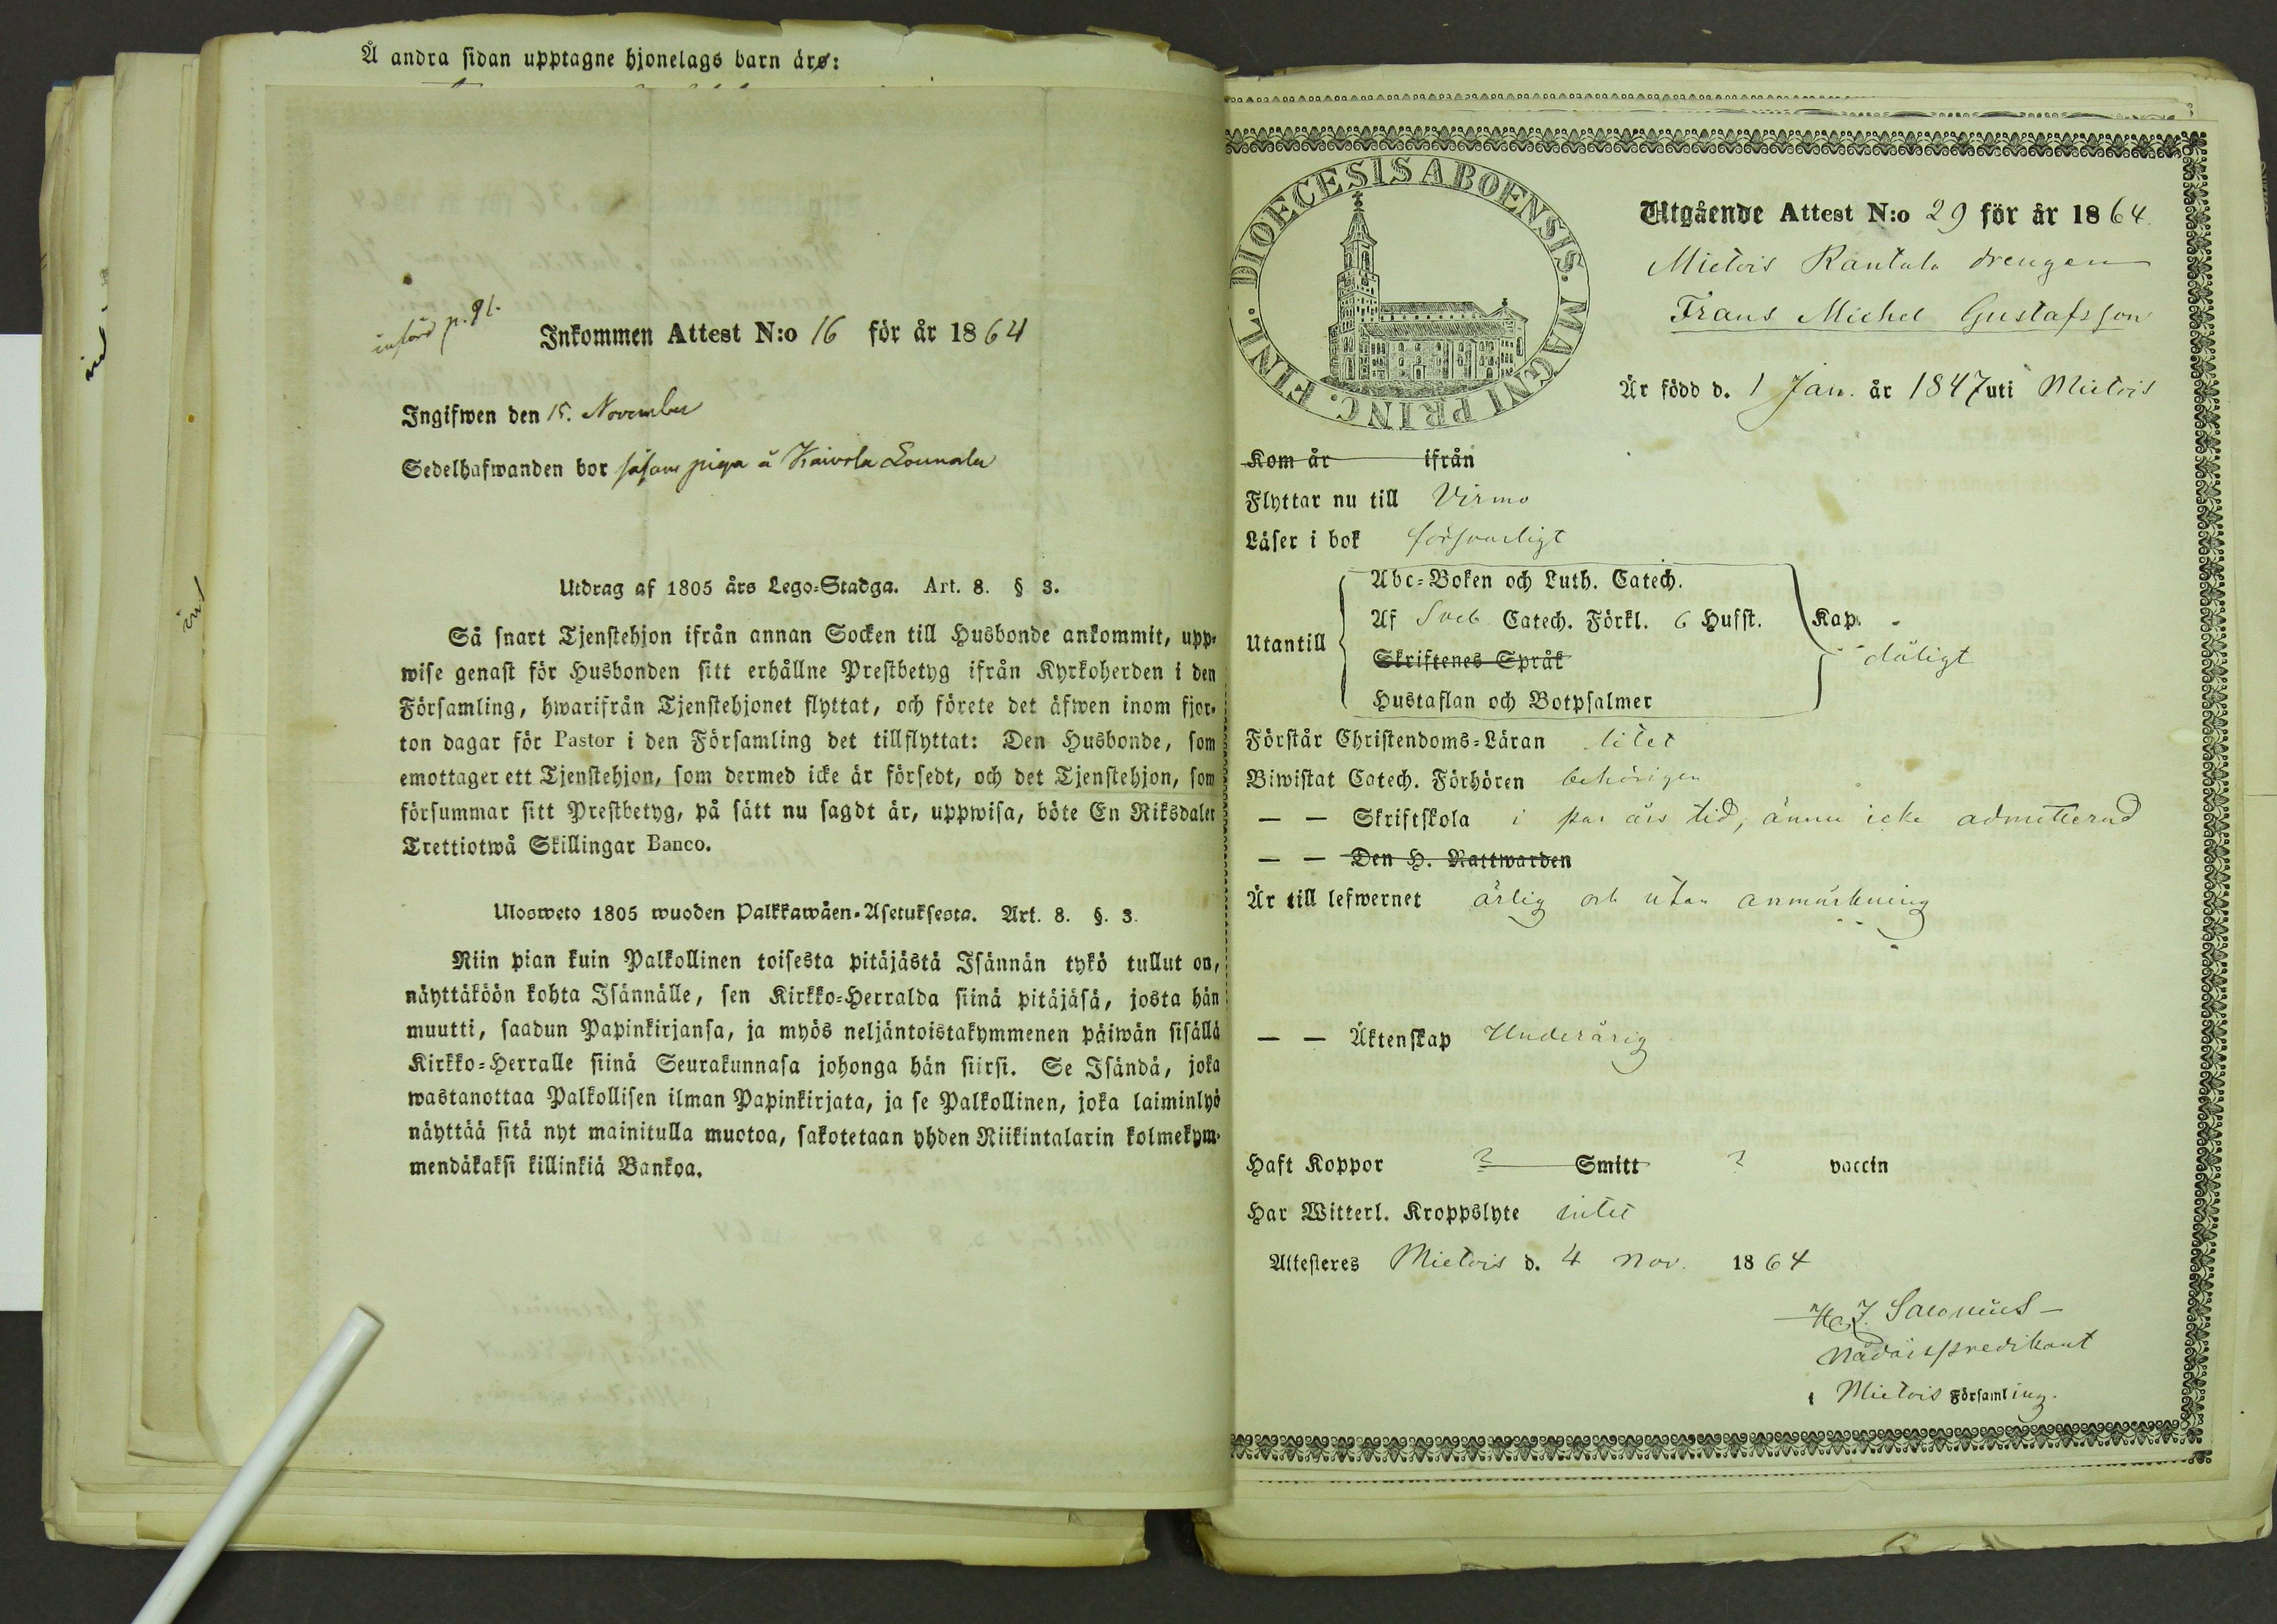 Å andra sidan upptagne hjonelags barn äro:
införd p. 91.
Inkommen Attest N:o 16 för år 1864
Ingifwen den 15. November
Sedelhafwanden bor såsom piga å Kaivola Lounala
Utdrag af 1805 års Lego-Stadga. Art. 8. § 3.
Så snart Tjenstehjon ifrån annan Socken till Husbonde ankommit, upp-
wise genast för Husbonden sitt erhållne Prestbetyg ifrån Kyrkoherden i den
Församling, hwarifrån Tjenstehjonet flyttat, och förete det äfwen inom fjor-
ton dagar för Pastor i den Församling det tillflyttat: Den Husbonde, som
emottager ett Tjenstehjon, som dermed icke är försedt, och det Tjenstehjon, som
försummar sitt Prestbetyg, på sätt nu sagdt är, uppwisa, böte En Riksdaler
Trettiotwå Skillingar Banco.
Ulosweto 1805 wuoden Palkkawäen-Asetuksesta. Art. 8. §. 3.
Niin pian kuin Palkollinen toisesta pitäjästä Isännän tykö tullut on,
näyttäköön kohta Isännälle, sen Kirkko-Herralda siinä pitäjäsä, josta hän
muutti, saadun Papinkirjansa, ja myös neljäntoistakymmenen päiwän sisällä
Kirkko-Herralle siinä Seurakunnasa johonga hän siirsi. Se Isändä, joka
wastanottaa Palkollisen ilman Papinkirjata, ja se Palkollinen, joka laiminlyö
näyttää sitä nyt mainitulla muotoa, sakotetaan yhden Riikintalarin kolmekym-
mendäkaksi killinkiä Bankoa.
DIOECESIS ABOENSIS. MAGNI PRINC. FINL.
Utgående Attest N:o 29 för år 1864.
Mietois Rantala drengen
Frans Michel Gustafsson
Är född d. 1 Jan. år 1847 uti Mietois
Kom år ifrån
Flyttar nu till Virmo
Läser i bok försvarligt
Utantill
Abc-Boken och Luth. Catech.
Af Sveb. Catech. Förkl. 6 Hufst. Kap.
Skriftenes Språk
dåligt
Hustaflan och Botpsalmer
Förstår Christendoms-Läran litet
Biwistat Catech. Förhören behörigen
— — Skriftskola i par års tid, ännu icke admitterad
— — Den H. Nattwarden
Är till lefwernet ärlig och utan anmärkning
— — Äktenskap Underårig
Haft Koppor ? Smitt ? vaccin
Har Witterl. Kroppslyte intet
Attesteres Mietois d. 4 Nov. 1864
Nådårspredikant
i Mietois Församling.